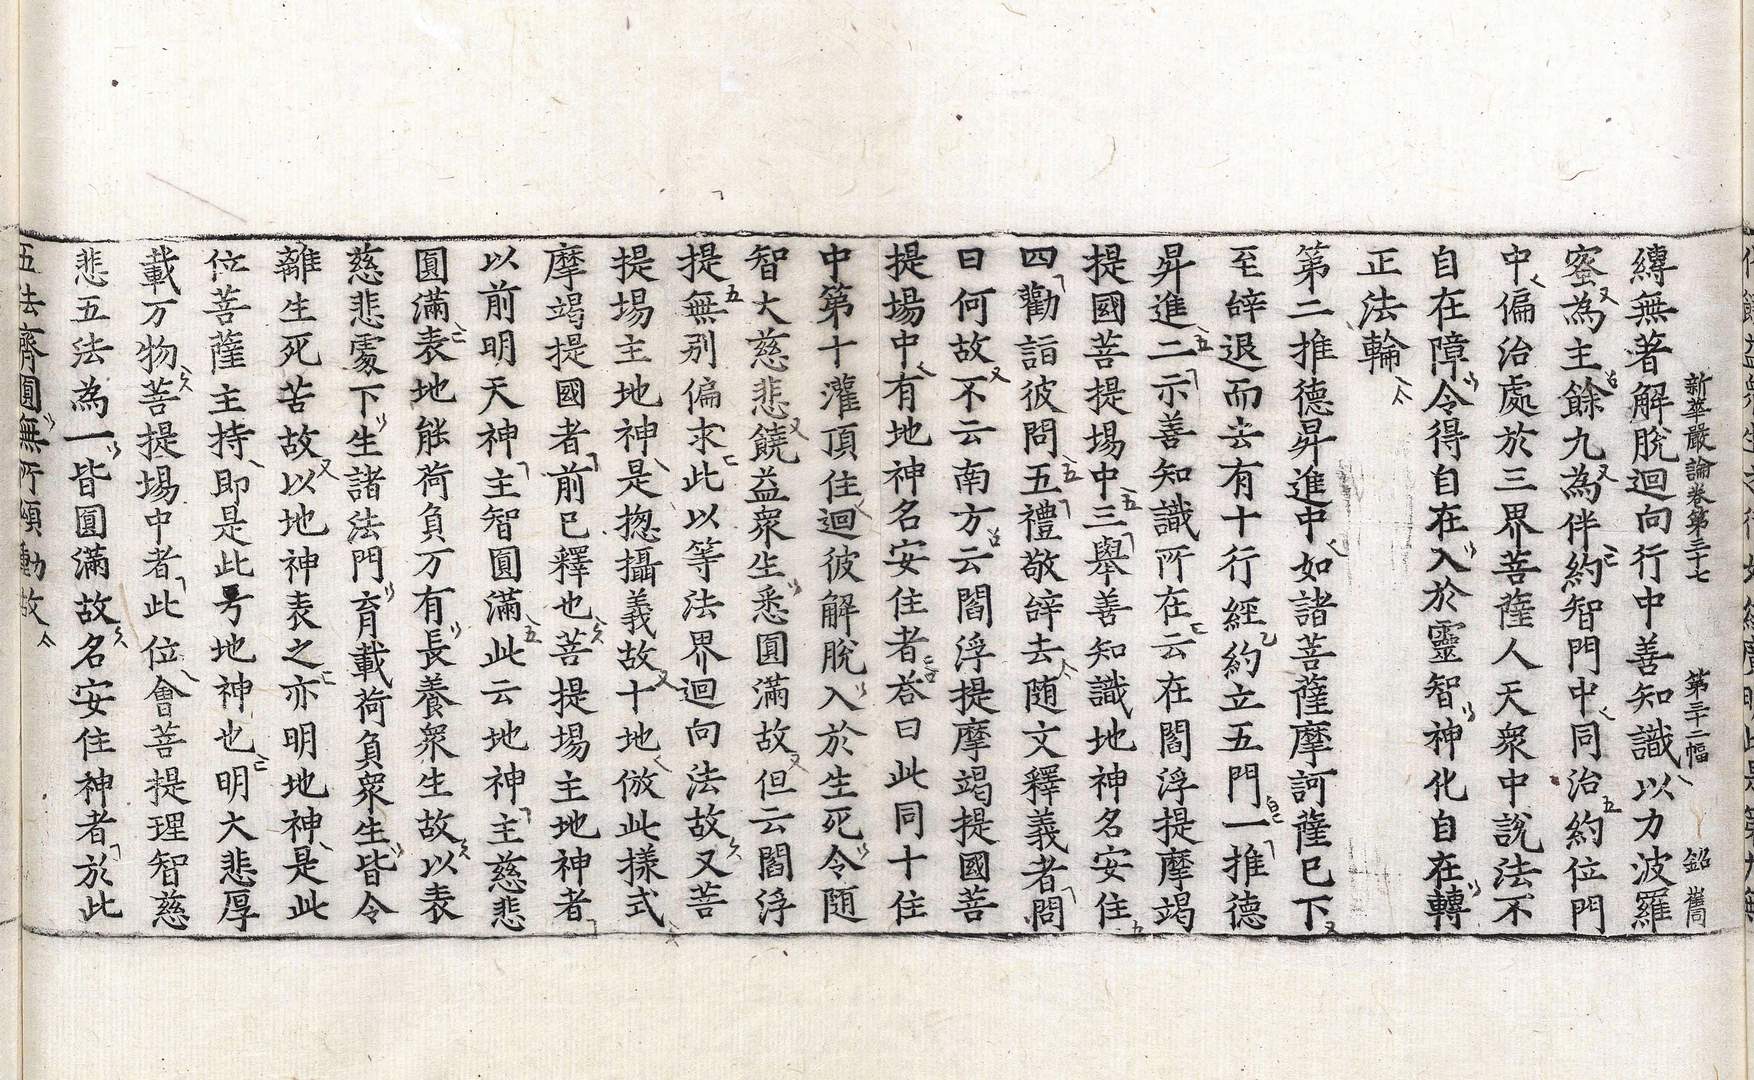 新華嚴論卷第三十七　第三十二幅　銘　雋
縛無著解脫迴向行中善知識以力波羅
蜜為主餘九為伴約智門中同治約位門
中偏治處於三界菩薩人天衆中說法不
自在障令得自在入於靈智神化自在轉
正法輪
第二推德昇進中如諸菩薩摩訶薩已下
至辝退而去有十行經約立五門一推德
昇進二示善知識所在云在閻浮提摩竭
提國菩提場中三舉善知識地神名安住
四勸詣彼問五禮敬辝去随文釋義者問
曰何故不云南方云閻浮提摩竭提國菩
提場中有地神名安住者荅曰此同十住
中第十灌頂住迴彼解脫入於生死令随
智大慈悲饒益衆生悉圓滿故但云閻浮
提無别偏求此以等法界迴向法故又菩
提場主地神是揔攝義故十地倣此樣式
摩竭提國者前已釋也菩提場主地神者
以前明天神主智圓滿此云地神主慈悲
圓滿表地能荷負万有長養衆生故以表
慈悲處下生諸法門育載荷負衆生皆令
離生死苦故以地神表之亦明地神是此
位菩薩主持即是此号地神也明大悲厚
載万物菩提場中者此位會菩提理智慈
悲五法為一皆圓滿故名安住神者於此
五法齊圓無所傾動故